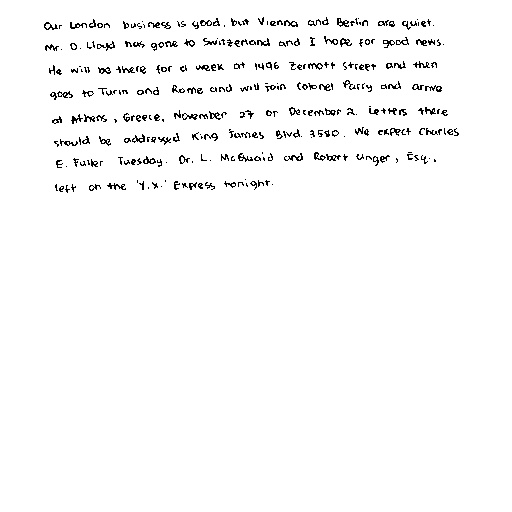 Our London business is good, but Vienna and Berlin are quiet.
Mr. D. Lloyd has gone to Switzerland and I hope for good news.
He will be there for a week at 1496 Zermott street and then
goes to Turin and Rome and will join Colonel Parry and arrive
at Athens, Greece, November 27 or December 2. Letters there
should be addressed King James Blvd. 3580. We expect Charles
E. Fuller Tuesday. Dr. L. McQuaid and Robert Unger, Esq.,
left on the 'Y.X.' Express tonight.